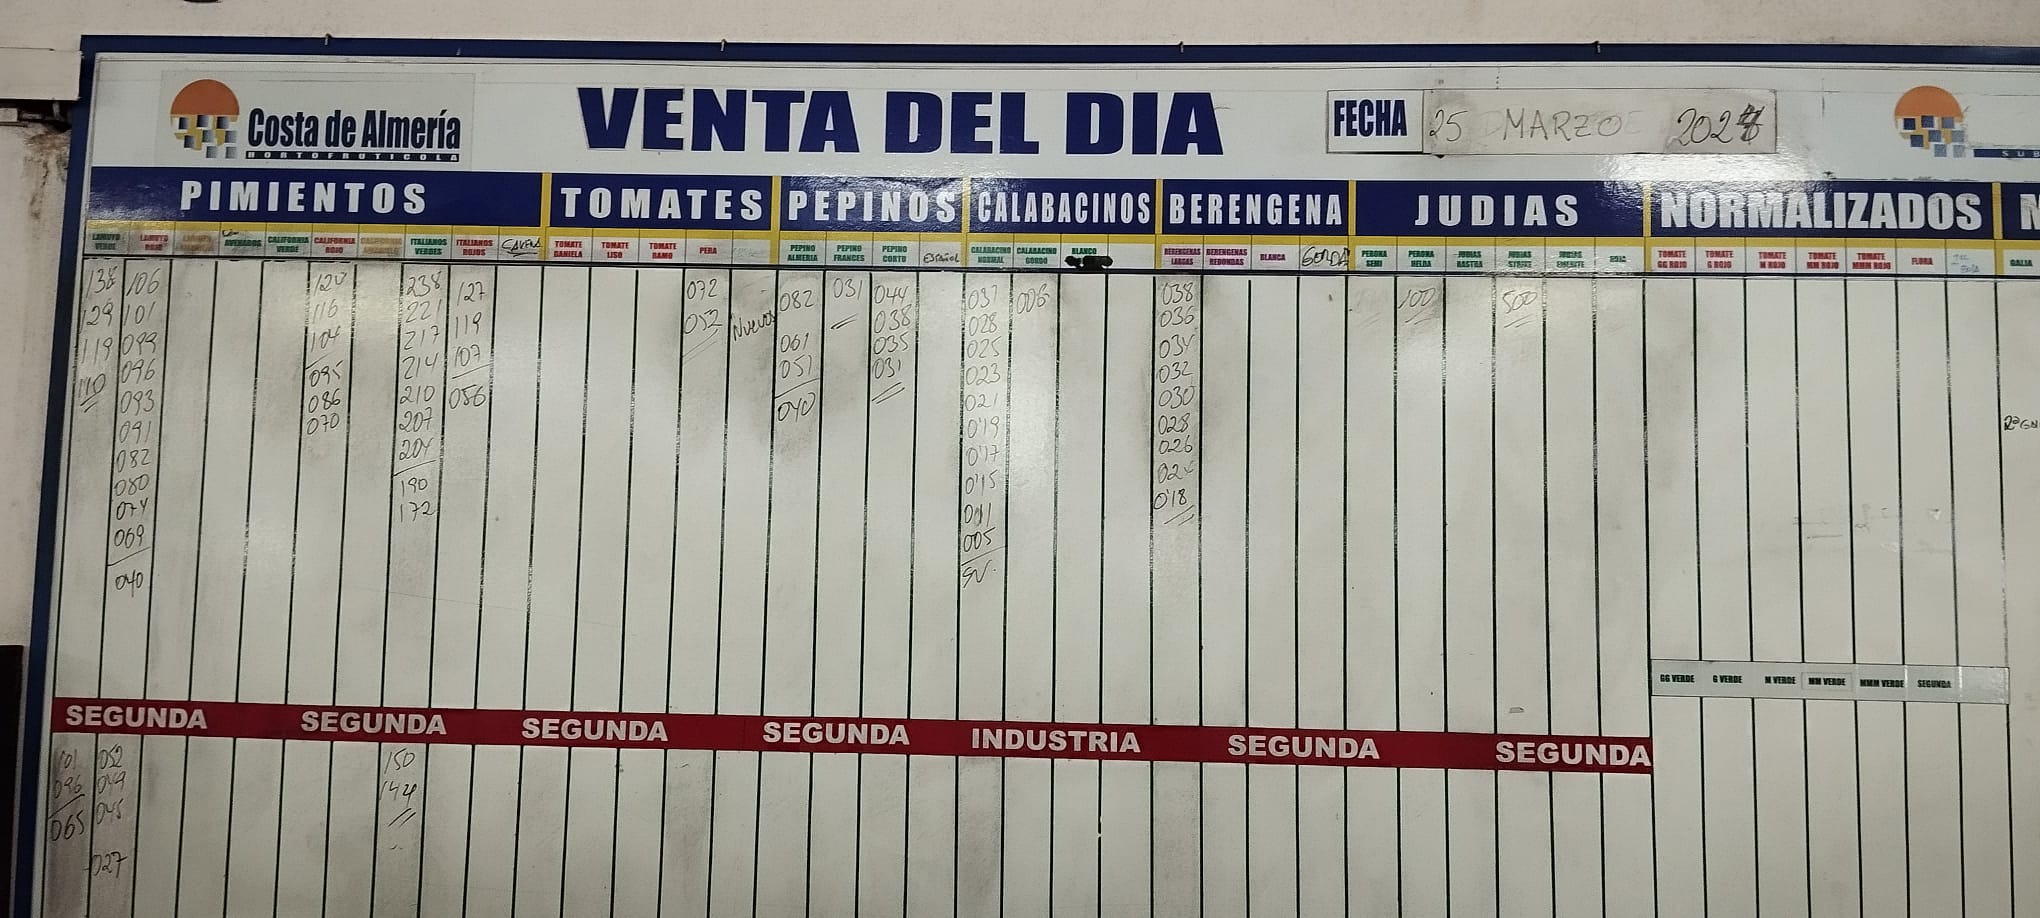 Costa de Almería
HORTOFRUTICOLA
VENTA DEL DIA
FECHA
25 MARZO 2024
SUB
PIMIENTOS
TOMATES
PEPINOS
CALABACINOS
BERENGENA
JUDIAS
NORMALIZADOS
LAMUYO VERDE
LAMUYO ROJO
CALIFORNIA VERDE
CALIFORNIA ROJO
CALIFORNIA AMARILLO
ITALIANOS VERDES
ITALIANOS ROJOS
TOMATE DANIELA
TOMATE LISO
TOMATE RAMO
PERA
PEPINO ALMERIA
PEPINO FRANCES
PEPINO CORTO
ESPAÑOL
CALABACINO NORMAL
CALABACINO GORDO
BLANCO
BERENGENAS LARGAS
BERENGENAS REDONDAS
BLANCA
GORDA
PERONA SEMI
PERONA HELDA
JUDIAS RASTRA
JUDIAS STRIKE
JUDIAS EMERITE
ROJA
TOMATE GG ROJO
TOMATE G ROJO
TOMATE M ROJO
TOMATE MM ROJO
TOMATE MMM ROJO
FLORA
GALIA
138
129
119
110
106
101
099
096
093
091
082
080
074
069
040
120
116
104
095
086
070
238
221
217
214
210
207
204
190
172
127
119
107
056
072
052
Nuevos
082
061
051
040
031
044
038
035
031
037
028
025
023
021
0'19
0'17
0'15
011
005
SV.
006
038
036
034
032
030
028
026
024
0'18
100
500
GG VERDE
G VERDE
M VERDE
MM VERDE
MMM VERDE
SEGUNDA
SEGUNDA
SEGUNDA
SEGUNDA
SEGUNDA
INDUSTRIA
SEGUNDA
SEGUNDA
101
096
065
052
049
045
027
150
144